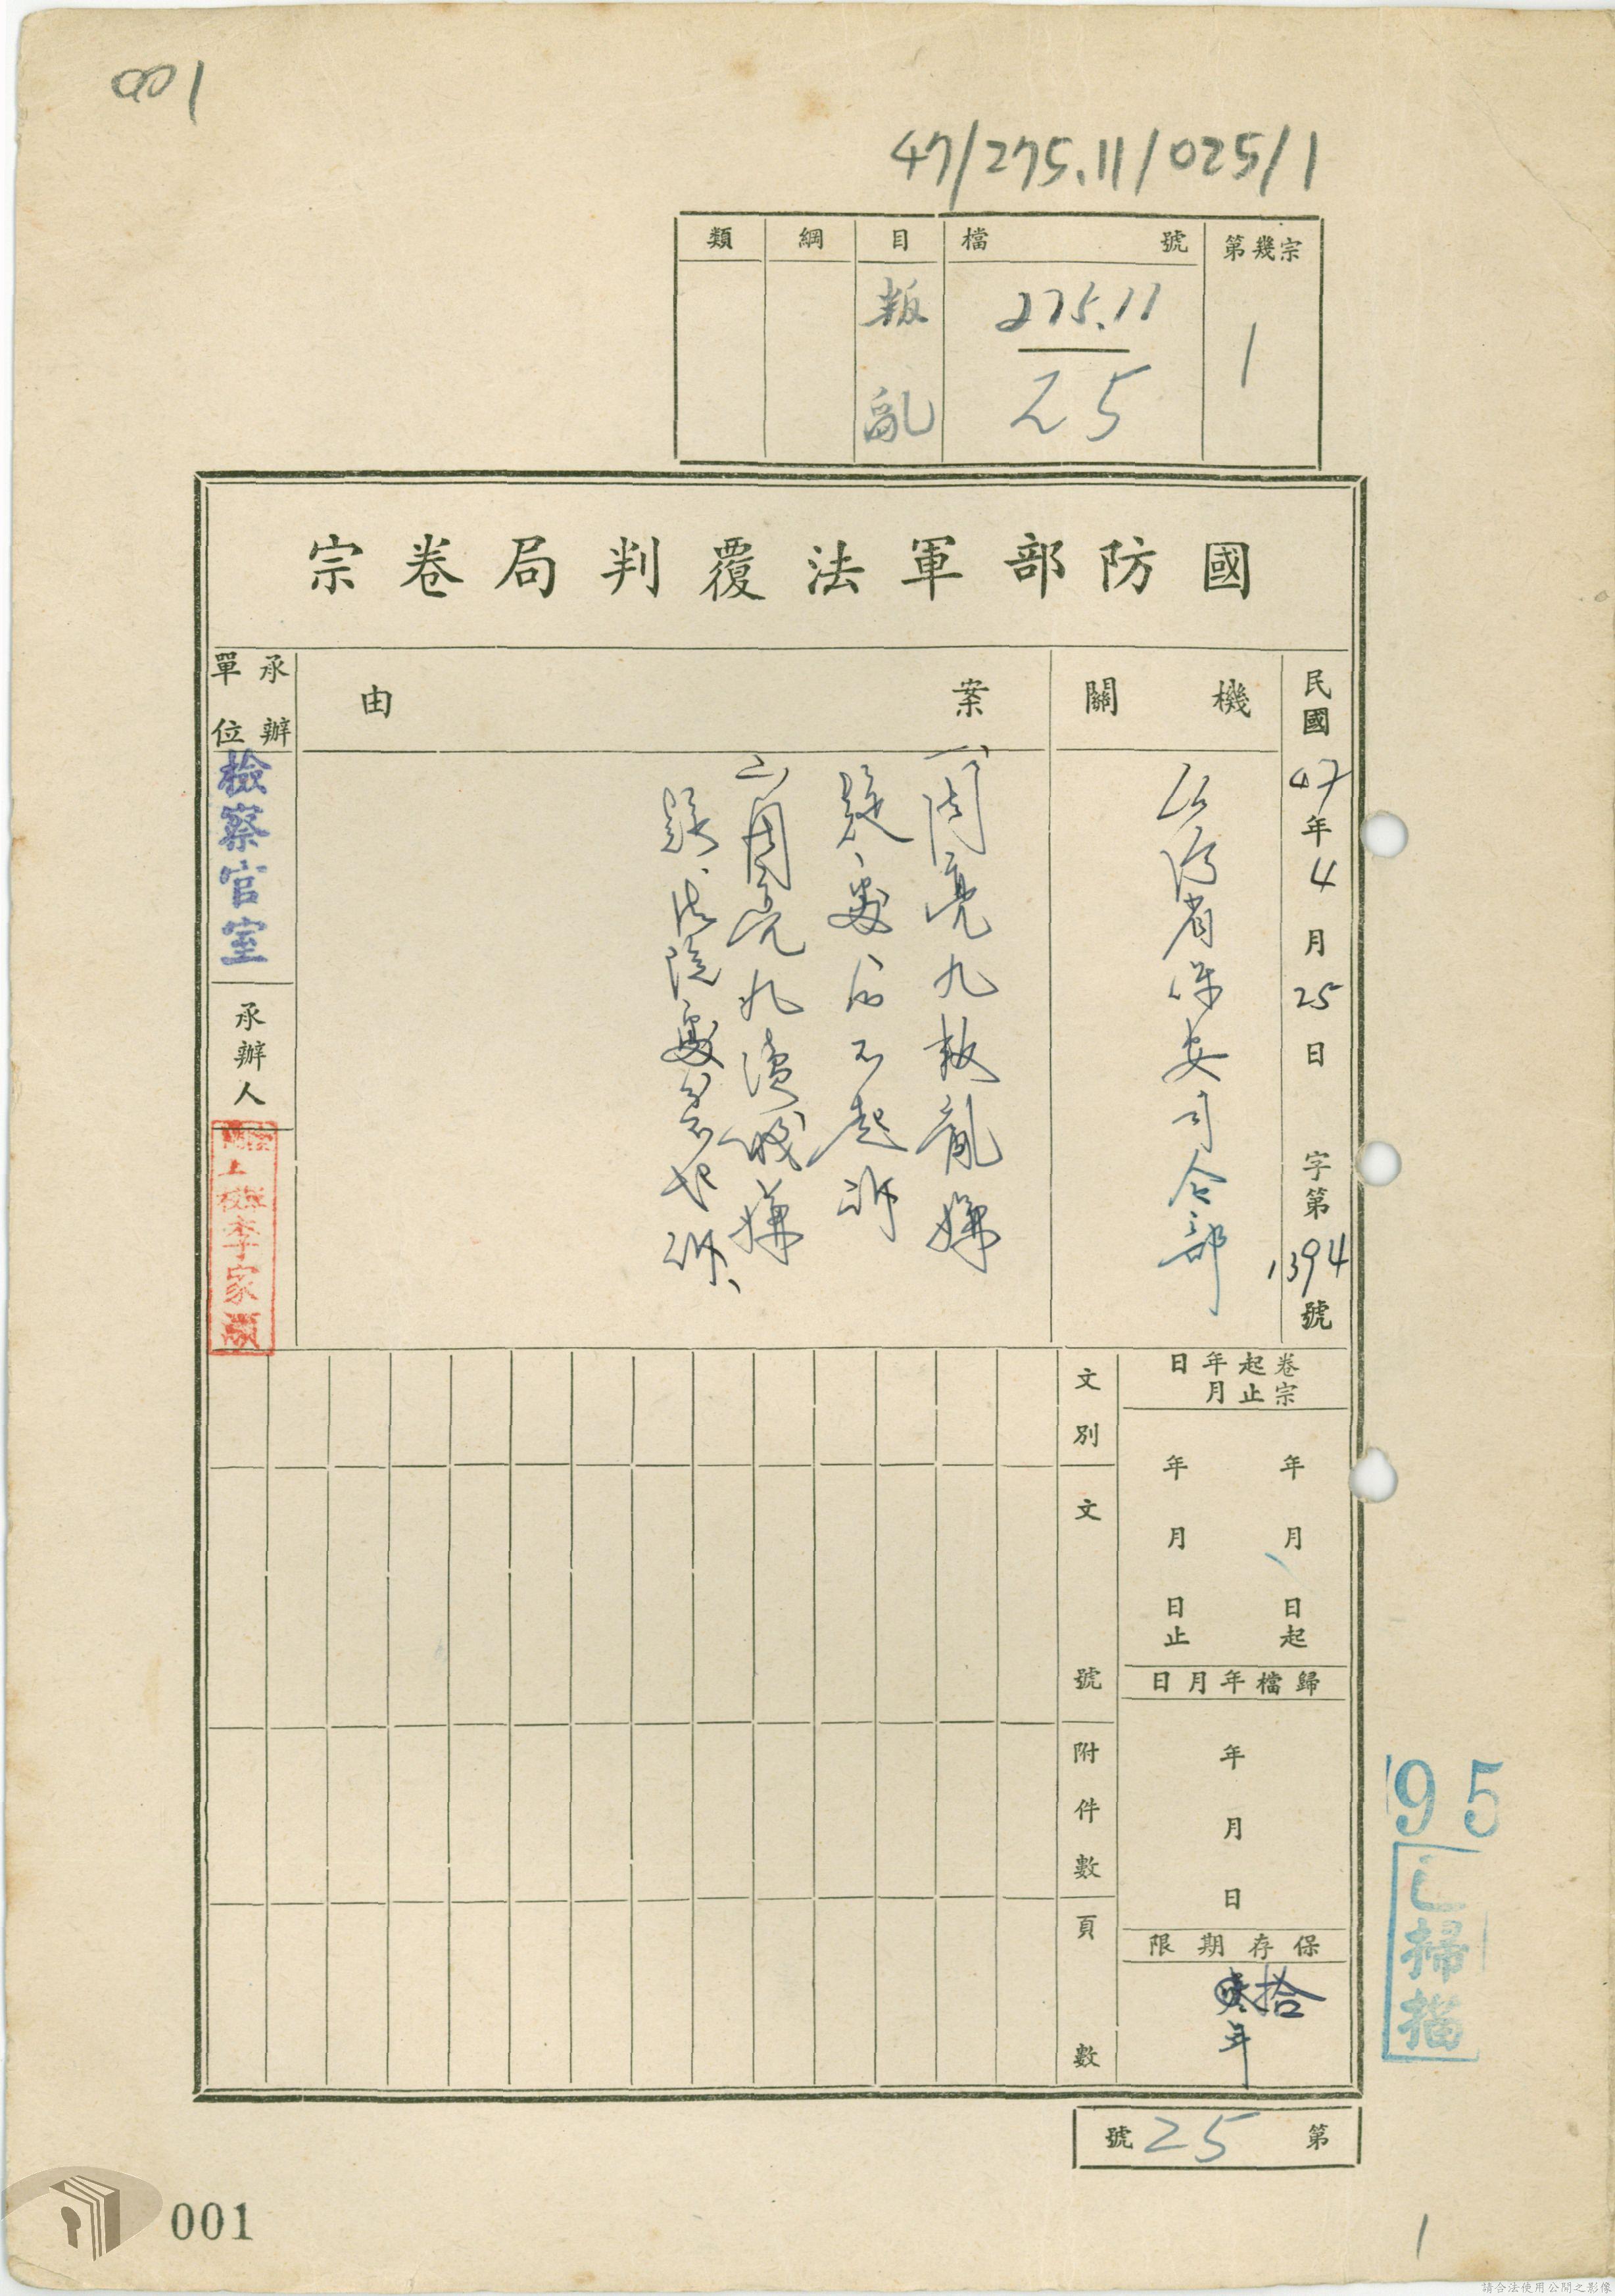 001
47/275.11/025/1
第幾宗
1
檔號
275.11
25
目
叛亂
綱
類
國防部軍法覆判局卷宗
民國47年4月25日 字第1394號
機關
台灣省保安司令部
案由
周亮九叛亂嫌
疑處分不起訴
周亮九瀆職嫌
疑法院處分不起訴
承辦單位
檢察官室
承辦人
李家
卷宗起止年月日
年月日起
年月日止
歸檔年月日
年月日
保存期限
拾年
文別
文號
附件數
頁數
第25號
95
已掃描
001
1
請合法使用公開之影像